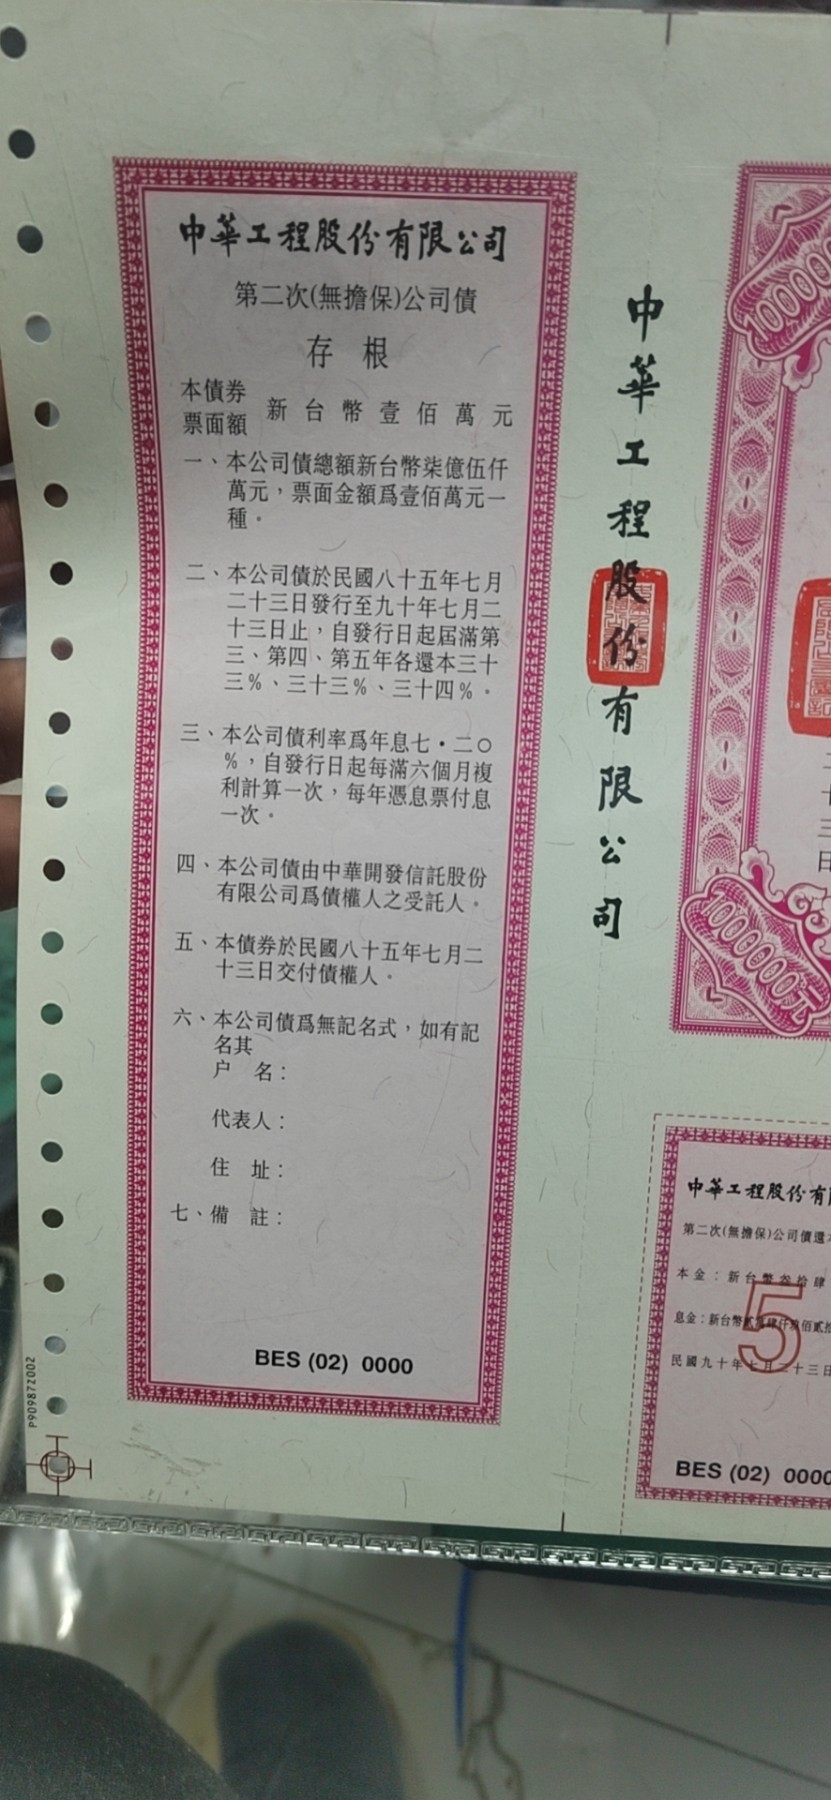 中華工程股份有限公司
第二次(無擔保)公司債
存根
本債券
票面額 新台幣壹佰萬元
一、本公司債總額新台幣柒億伍仟
萬元，票面金額爲壹佰萬元一
種。
二、本公司債於民國八十五年七月
二十三日發行至九十年七月二
十三日止，自發行日起屆滿第
三、第四、第五年各還本三十
三%、三十三%、三十四%。
三、本公司債利率爲年息七·二〇
%，自發行日起每滿六個月複
利計算一次，每年憑息票付息
一次。
四、本公司債由中華開發信託股份
有限公司爲債權人之受託人。
五、本債券於民國八十五年七月二
十三日交付債權人。
六、本公司債爲無記名式，如有記
名其
户 名：
代表人：
住 址：
七、備 註：
BES (02) 0000
P90987Z002
中華工程股份有限公司
1000000元
三
日
中華工程股份有
第二次(無擔保)公司債還
本金：新台幣叁拾肆
息金：新台幣貳萬肆仟
民國九十年七月二十三日
5
BES (02) 0000